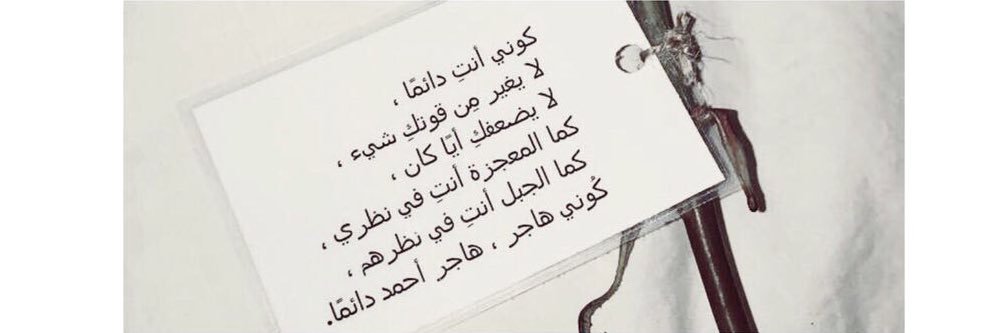 كوني أنتِ دائمًا ،
لا يغير مِن قوتكِ شيء ،
لا يضعفكِ أيًا كان ،
كما المعجزة أنتِ في نظري ،
كما الجبل أنتِ في نظرهم ،
كُوني هاجر ، هاجر أحمد دائمًا.